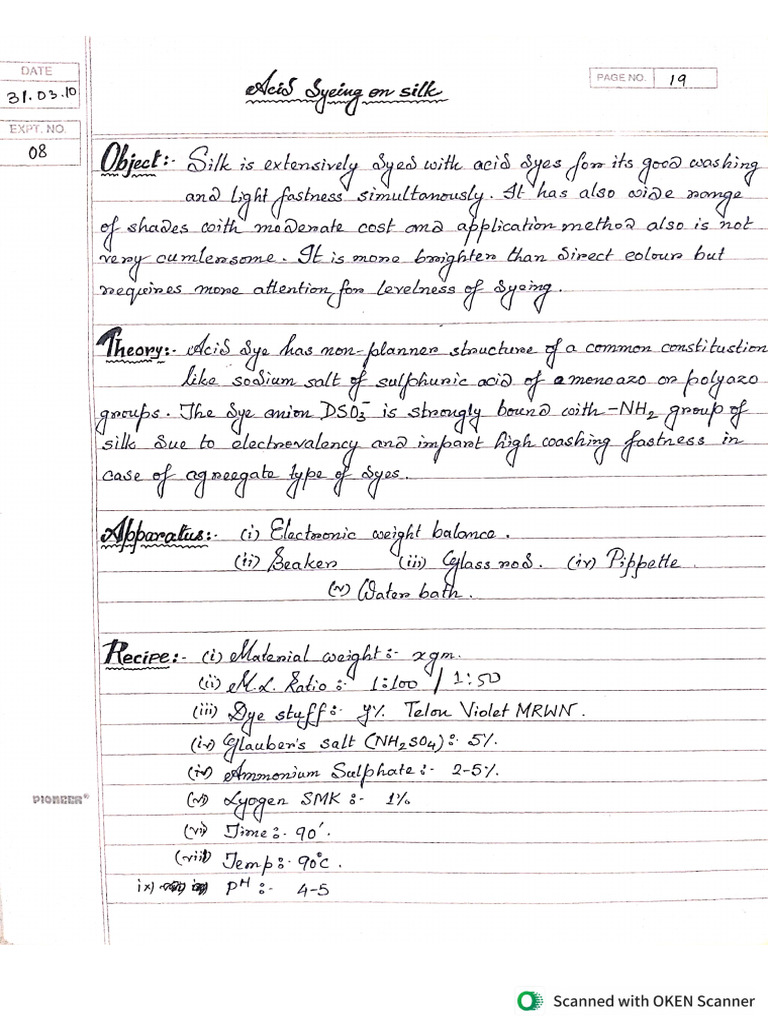 DATE
31.03.10
EXPT. NO.
08
PAGE NO. 19
Acid Dyeing on silk
Object:- Silk is extensively dyed with acid dyes for its good washing
and light fastness simultanously. It has also wide range
of shades with moderate cost and application method also is not
very cumlersome. It is more brighter than direct colour but
requires more attention for levelness of dyeing.
Theory:- Acid dye has non-planner structure of a common constitustion
like sodium salt of sulphuric acid of a monoazo or polyazo
groups. The dye anion DSO₃⁻ is strongly bound with -NH₂ group of
silk due to electrovalency and impart high washing fastness in
case of agreegate type of dyes.
Apparatus:- (i) Electronic weight balance.
(ii) Beaker (iii) Glass rod. (iv) Pippette.
(v) Water bath.
Recipe:- (i) Material weight:- x gm.
(ii) M.L. Ratio:- 1:100 / 1:50
(iii) Dye stuff:- y% Telon Violet MRWN.
(iv) Glauber's salt (NH₂SO₄):- 5%.
(iv) Ammonium Sulphate:- 2-5%.
(v) Lyogen SMK:- 1%
(vi) Time:- 90'.
(viii) Temp:- 90°c.
ix) pH:- 4-5
PIONEER®
Scanned with OKEN Scanner